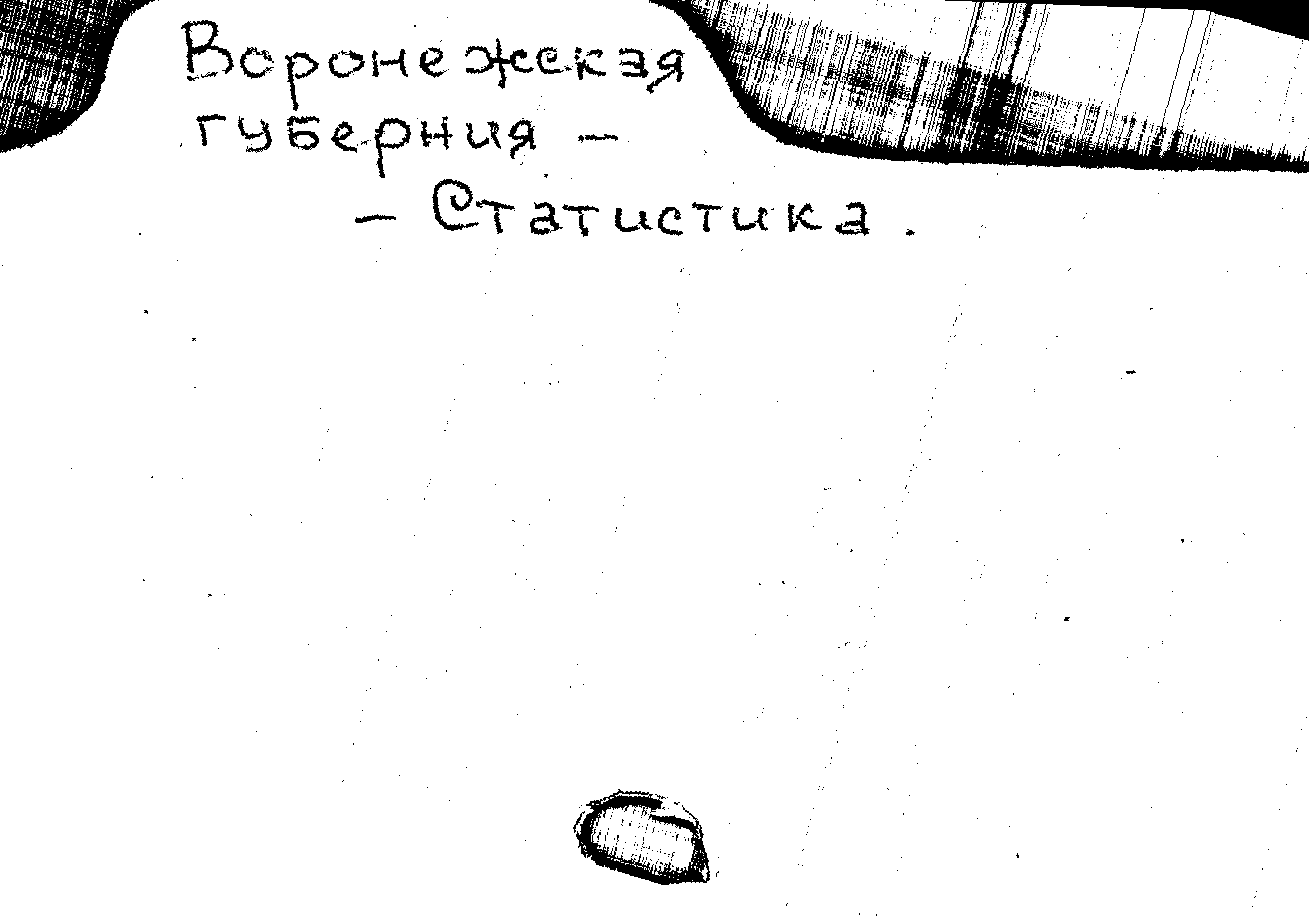 Воронежская
губерния —
— Статистика.